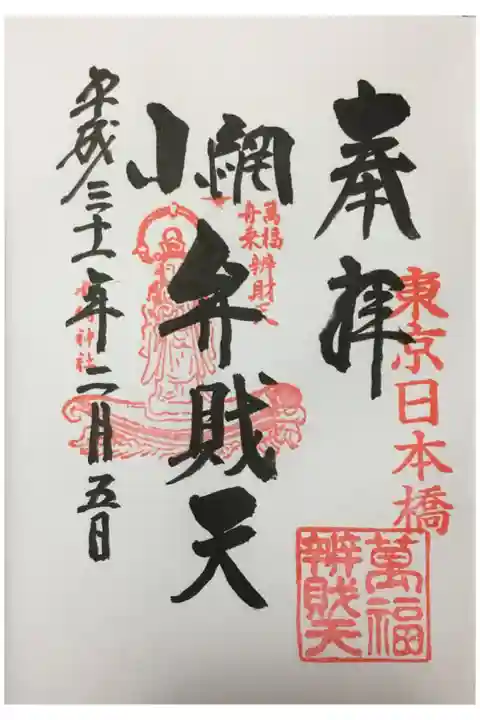 東京日本橋
奉拝
萬福
辨財天
小網
弁財天
萬福
舟乗
辨財天
平成三十一年二月五日
神社